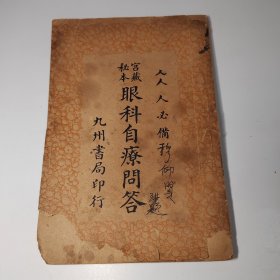 人人必備
宮藏秘本
眼科自療問答
九州書局印行